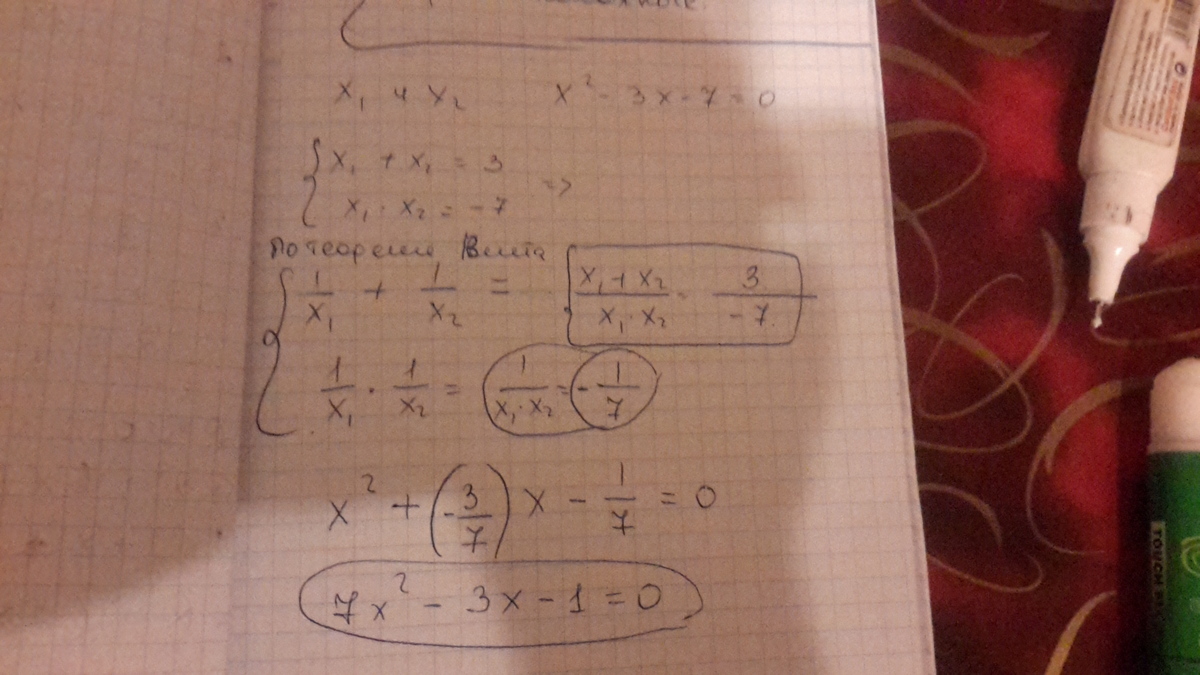 x₁ и x₂ x² - 3x - 7 = 0
x₁ + x₁ = 3
=>
x₁ · x₂ = -7
По теореме Виета
1/x₁ + 1/x₂ = (x₁ + x₂)/(x₁ · x₂) = 3/-7
1/x₁ · 1/x₂ = 1/(x₁ · x₂) = -1/7
x² + (-3/7) x - 1/7 = 0
7x² - 3x - 1 = 0
TOUCH